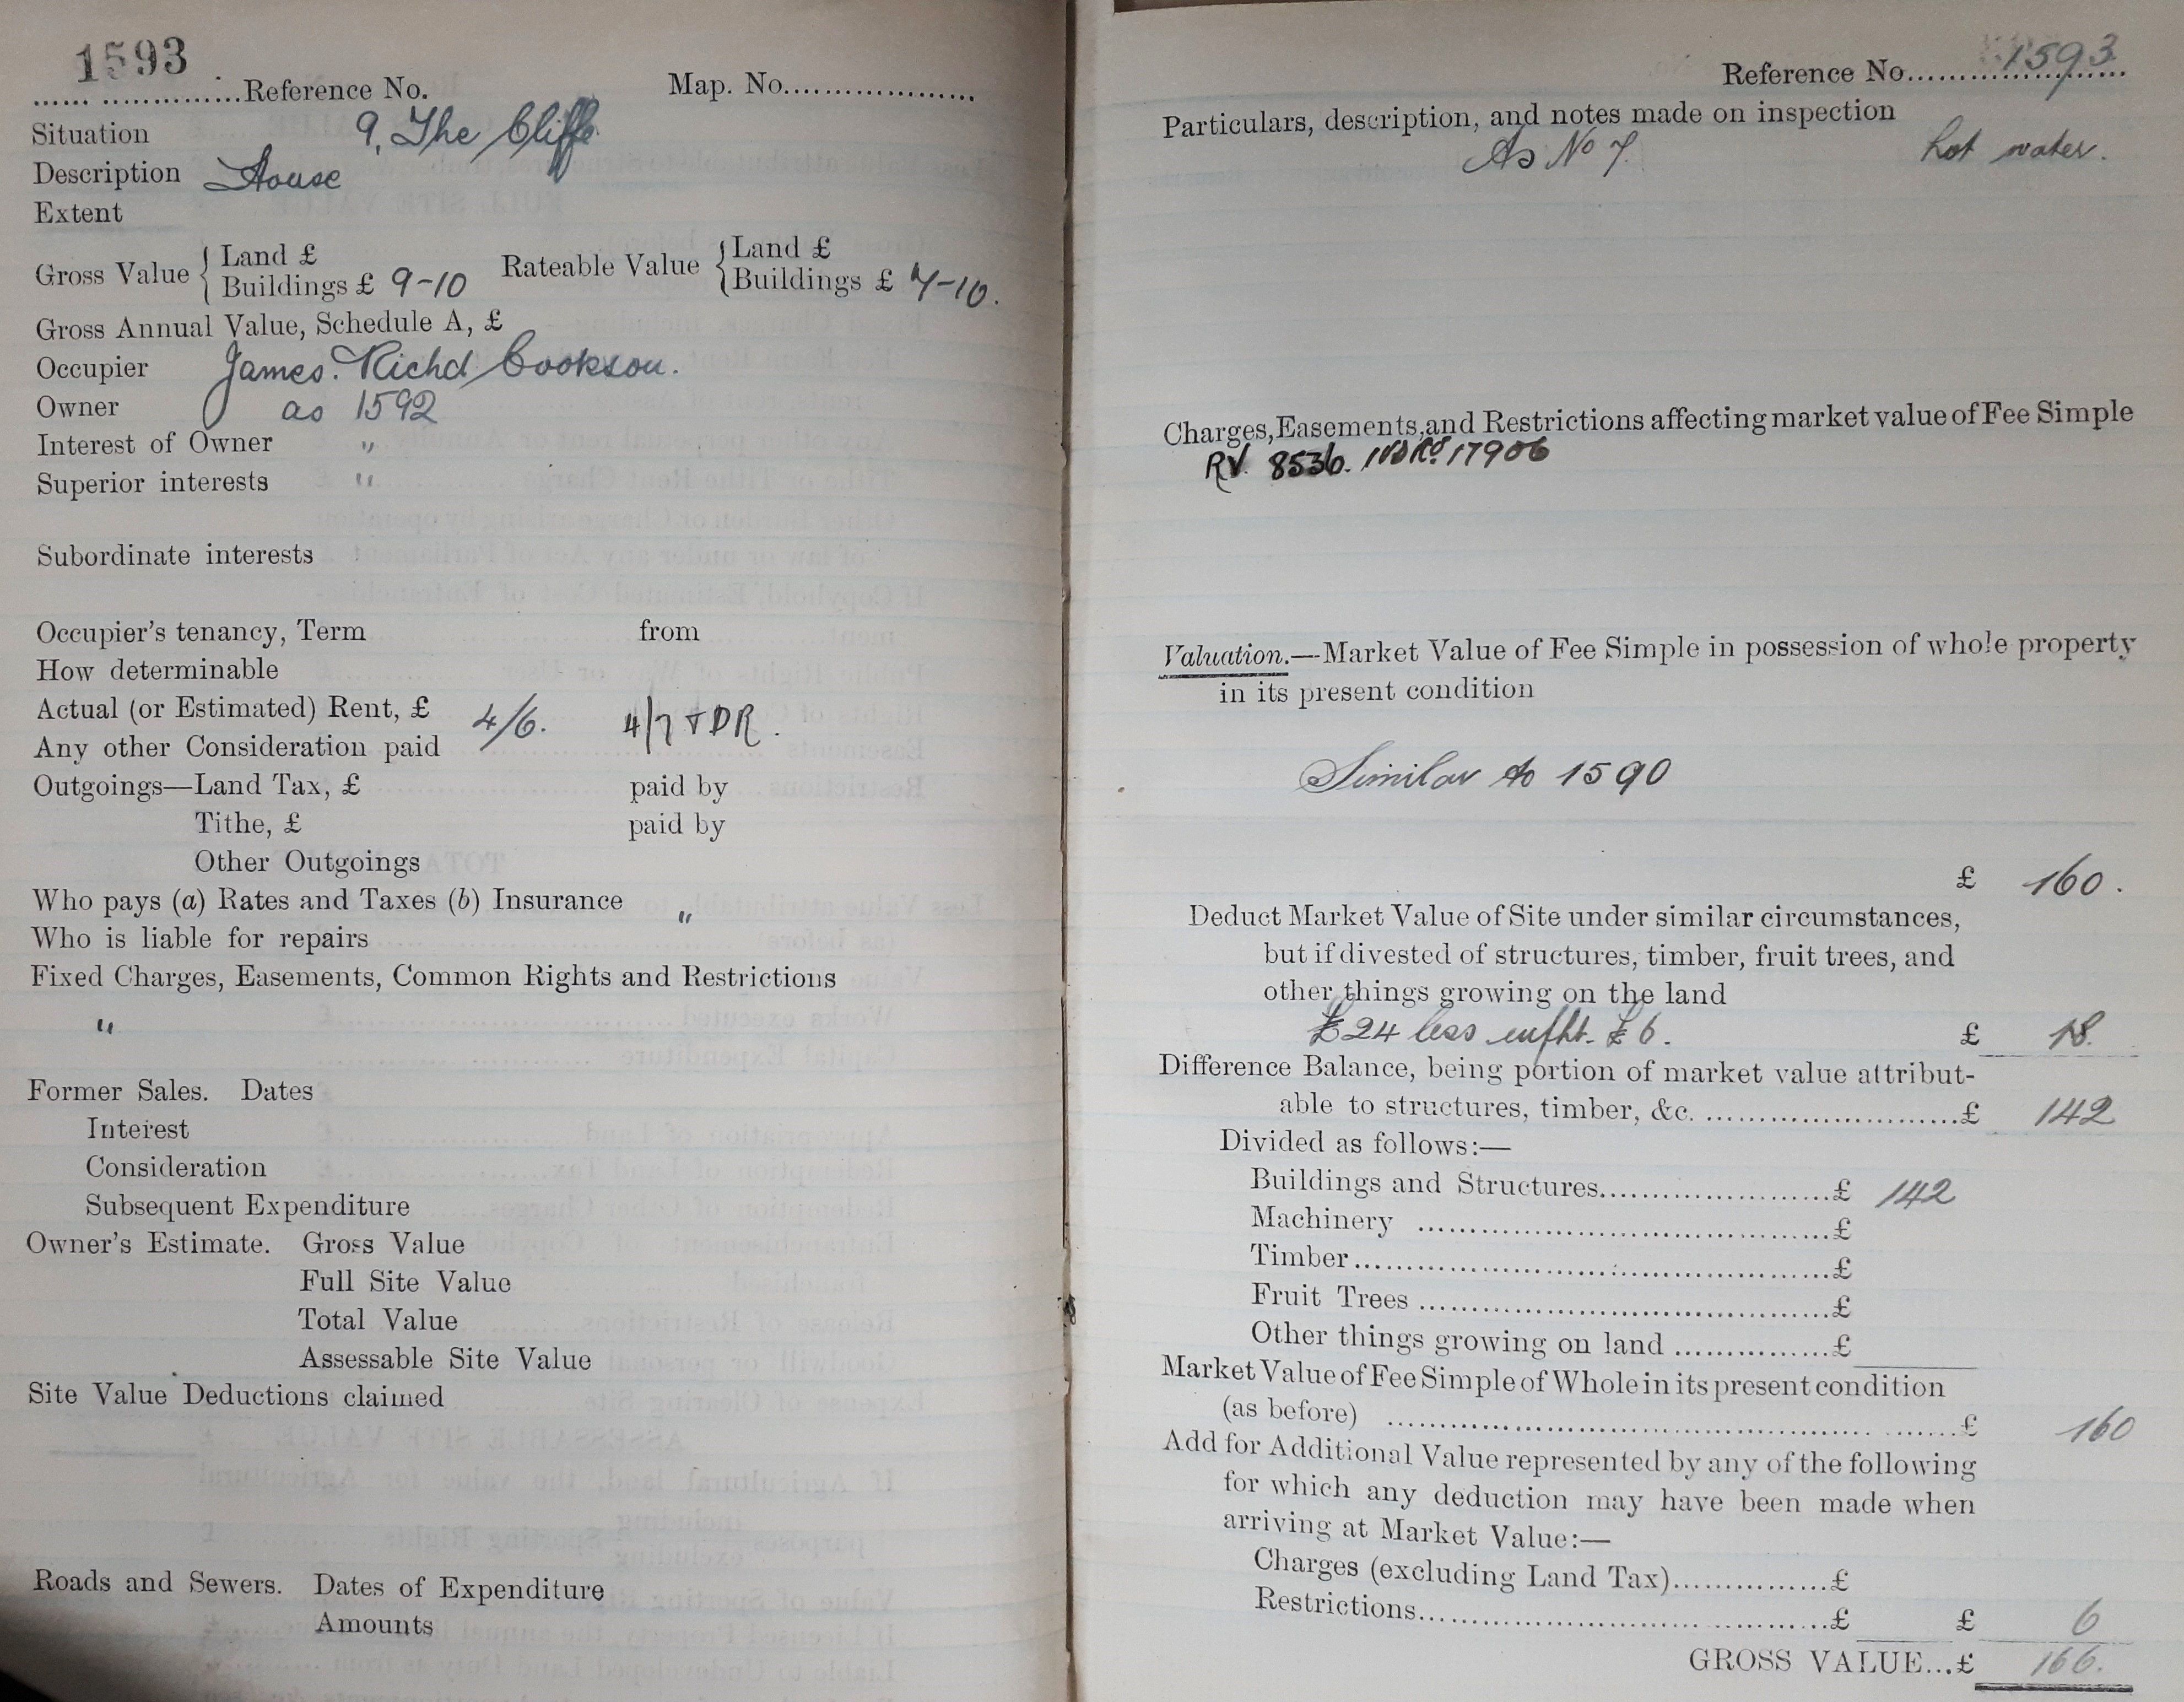 1593
Reference No. Map. No.
Situation 9, The Cliffe
Description House
Extent
Gross Value { Land £
Buildings £ 9-10
Rateable Value { Land £
Buildings £ 7-10.
Gross Annual Value, Schedule A, £
Occupier James. Richd Cookson.
Owner as 1592
Interest of Owner "
Superior interests "
Subordinate interests
Occupier's tenancy, Term from
How determinable
Actual (or Estimated) Rent, £ 4/6. 4/7 + DR.
Any other Consideration paid
Outgoings—Land Tax, £ paid by
Tithe, £ paid by
Other Outgoings
Who pays (a) Rates and Taxes (b) Insurance "
Who is liable for repairs
Fixed Charges, Easements, Common Rights and Restrictions
"
Former Sales. Dates
Interest
Consideration
Subsequent Expenditure
Owner's Estimate. Gross Value
Full Site Value
Total Value
Assessable Site Value
Site Value Deductions claimed
Roads and Sewers. Dates of Expenditure
Amounts
Reference No. 1593
Particulars, description, and notes made on inspection
As No 7. hot water.
Charges, Easements, and Restrictions affecting market value of Fee Simple
RV. 8536. 17906
Valuation.—Market Value of Fee Simple in possession of whole property
in its present condition
Similar to 1590
£ 160.
Deduct Market Value of Site under similar circumstances,
but if divested of structures, timber, fruit trees, and
other things growing on the land
£24 less enfht. £6. £ 18.
Difference Balance, being portion of market value attribut-
able to structures, timber, &c. £ 142
Divided as follows:—
Buildings and Structures £ 142
Machinery £
Timber £
Fruit Trees £
Other things growing on land £
Market Value of Fee Simple of Whole in its present condition
(as before) £ 160
Add for Additional Value represented by any of the following
for which any deduction may have been made when
arriving at Market Value:—
Charges (excluding Land Tax) £
Restrictions £ £ 6
GROSS VALUE...£ 166.